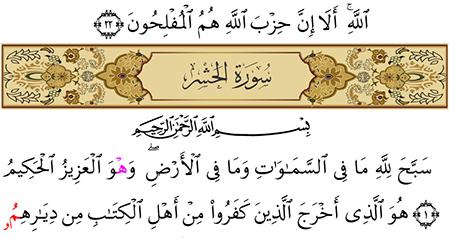 ٱللَّهِ ۚ أَلَآ إِنَّ حِزْبَ ٱللَّهِ هُمُ ٱلْمُفْلِحُونَ ﴿٢٢﴾
سُورَةُ الحَشْرِ
بِسْمِ ٱللَّهِ ٱلرَّحْمَٰنِ ٱلرَّحِيمِ
سَبَّحَ لِلَّهِ مَا فِى ٱلسَّمَٰوَٰتِ وَمَا فِى ٱلْأَرْضِ ۖ وَهْوَ ٱلْعَزِيزُ ٱلْحَكِيمُ
﴿١﴾ هُوَ ٱلَّذِىٓ أَخْرَجَ ٱلَّذِينَ كَفَرُوا۟ مِنْ أَهْلِ ٱلْكِتَٰبِ مِن دِيَٰرِهِمُۥ و